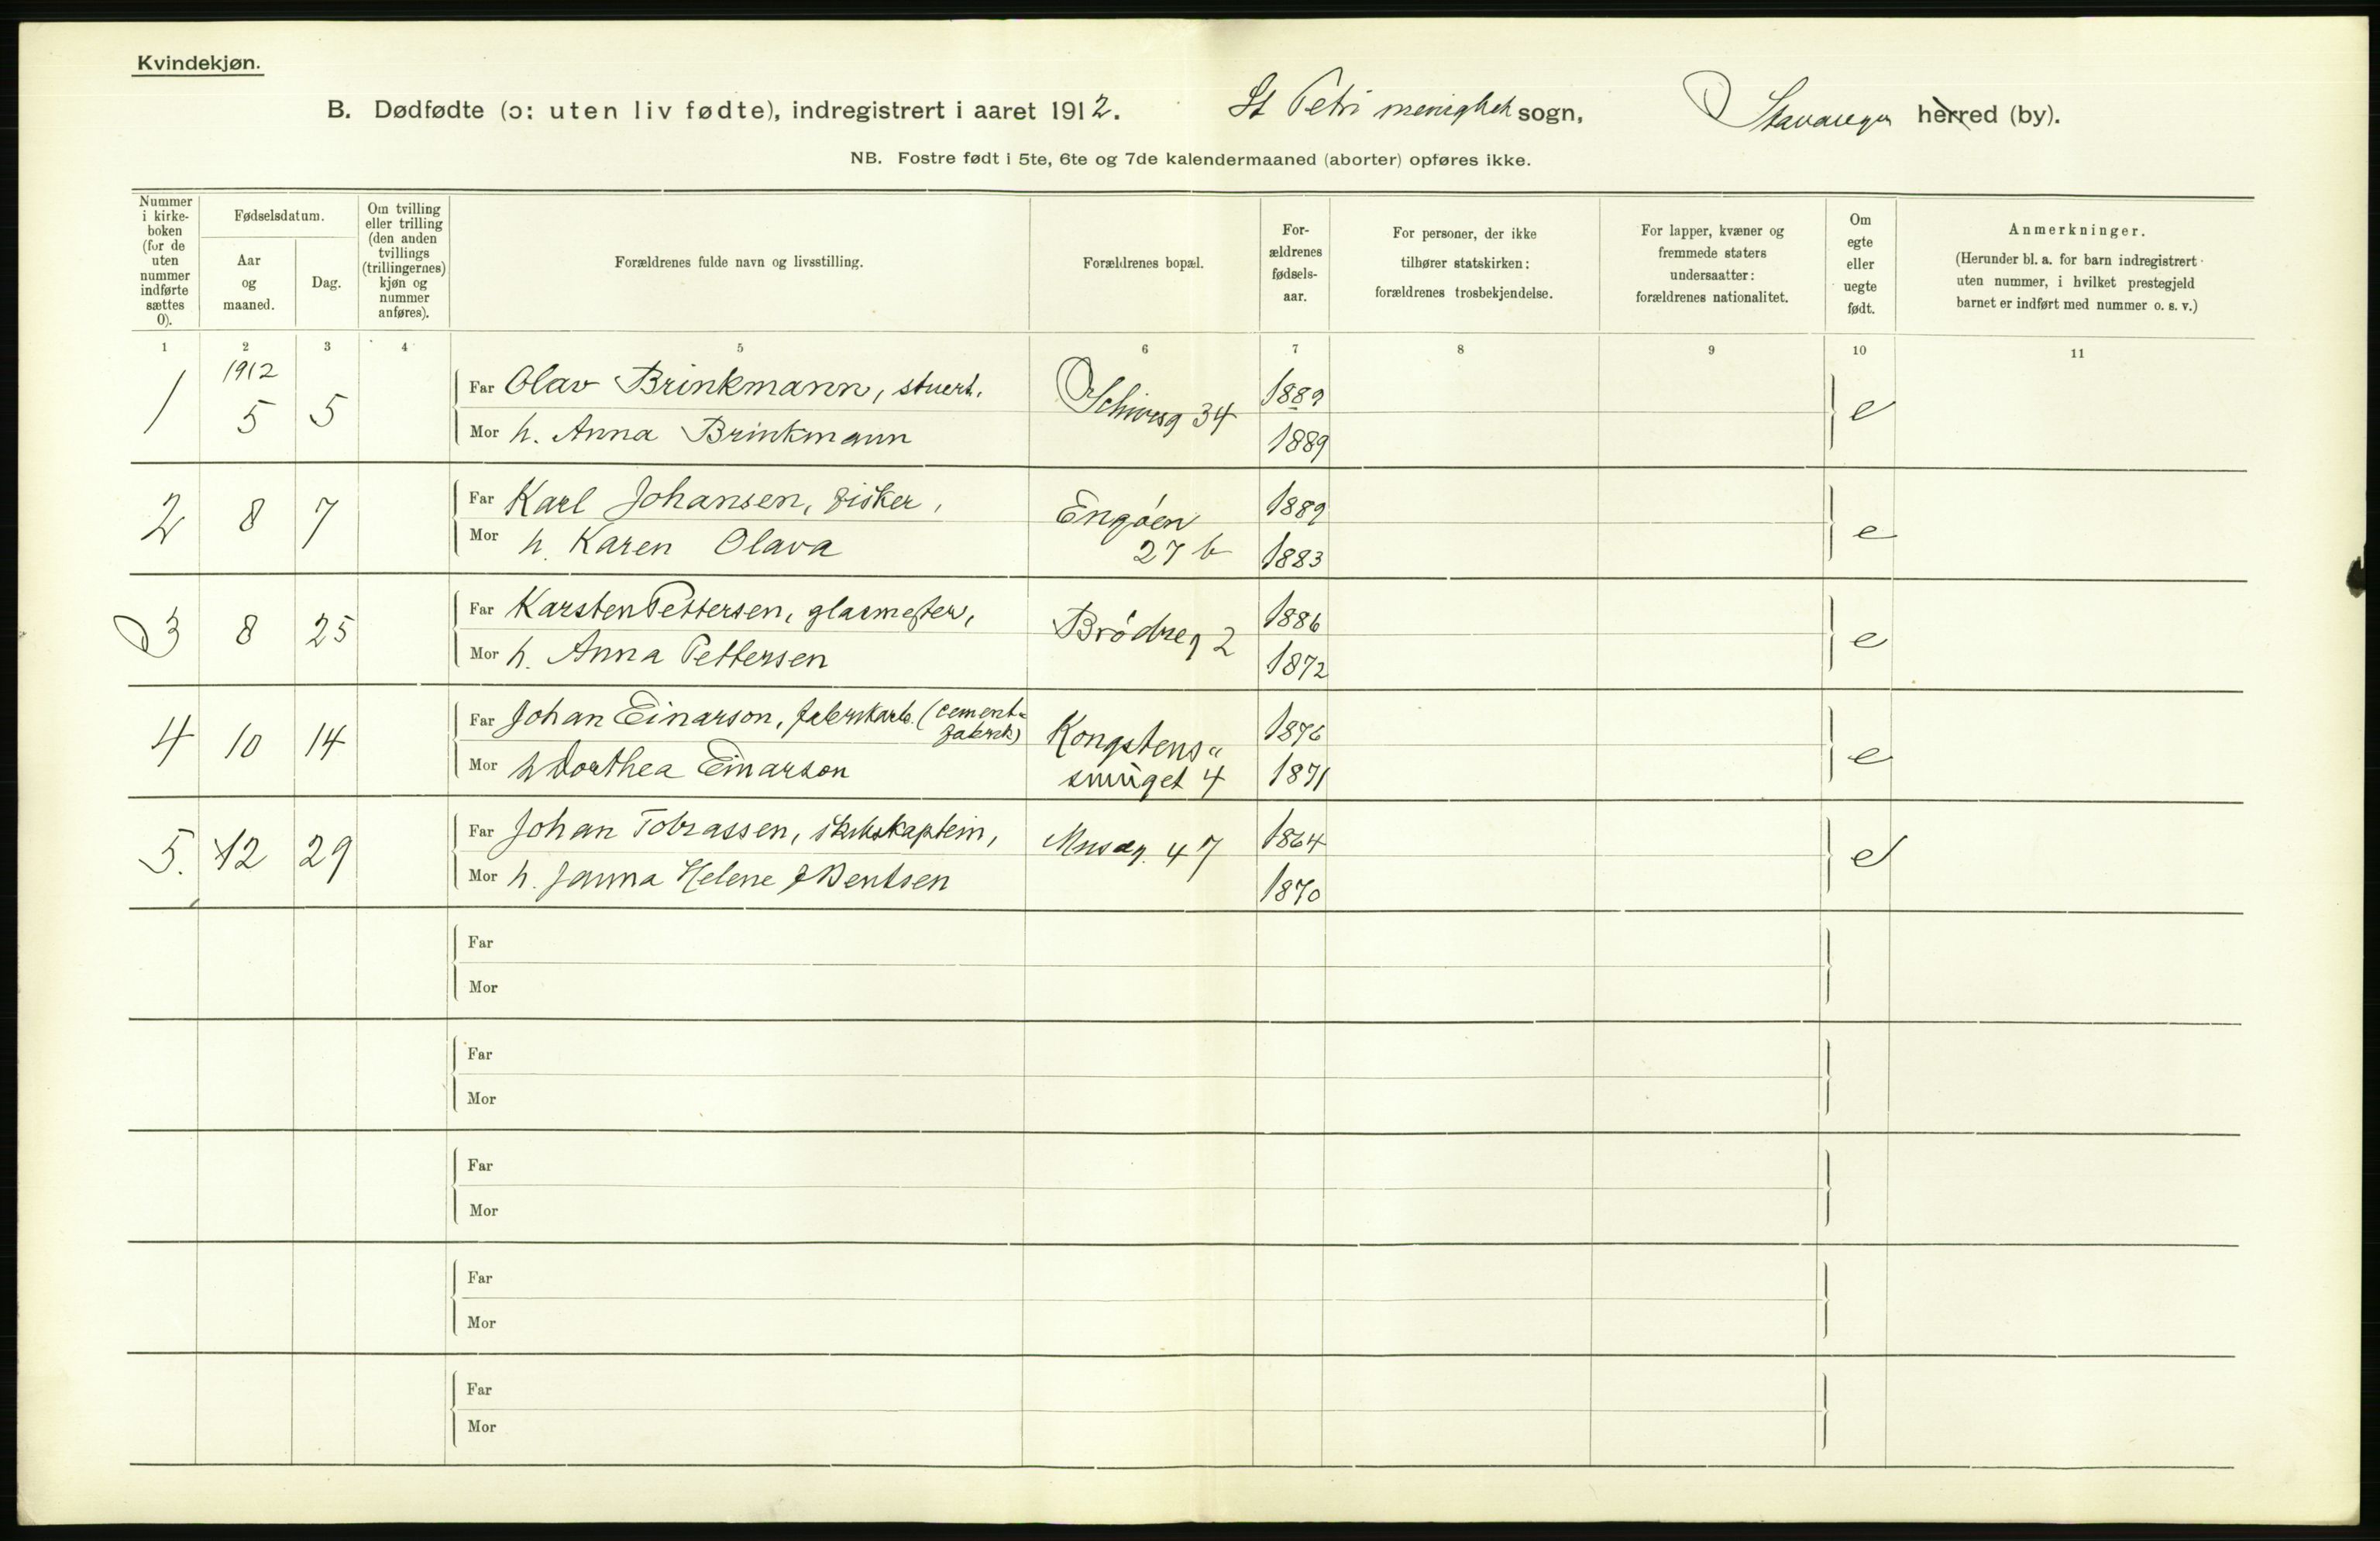 Kvindekjøn.
B. Dødfødte (ɔ: uten liv fødte), indregistrert i aaret 1912. St Petri menighet sogn, Stavanger herred (by).
NB. Fostre født i 5te, 6te og 7de kalendermaaned (aborter) opføres ikke.
Nummer i kirke- boken (for de uten nummer indførte sættes 0).
Fødselsdatum.
Aar og maaned.
Dag.
Om tvilling eller trilling (den anden tvillings (trillingernes) kjøn og nummer anføres).
Forældrenes fulde navn og livsstilling.
Forældrenes bopæl.
For- ældrenes fødsels- aar.
For personer, der ikke tilhører statskirken: forældrenes trosbekjendelse.
For lapper, kvæner og fremmede staters undersaatter: forældrenes nationalitet.
Om egte eller uegte født.
Anmerkninger.
(Herunder bl. a. for barn indregistrert uten nummer, i hvilket prestegjeld barnet er indført med nummer o. s. v.)
1 2 3 4 5 6 7 8 9 10 11
1912
1 5 5 Far Olav Brinkmann, stuert. 34 1889 e
Mor h. Anna Brinkmann 1889
2 8 7 Far Karl Johansen, fisker, Engøen 27 b 1889 e
Mor h. Karen Olava 1883
3 8 25 Far Karsten Pettersen, glasmester, Brødreg 2 1886 e
Mor h. Anna Pettersen 1872
4 10 14 Far Johan Einarson, (cement- fabrik) Kongstens" smuget 4 1876 e
Mor h Dorthea Einarson 1871
5. 12 29 Far Johan Tobiassen, skibskaptein, Museg. 47 1864 e
Mor h. Janna Helene Bentsen 1870
Far
Mor
Far
Mor
Far
Mor
Far
Mor
Far
Mor